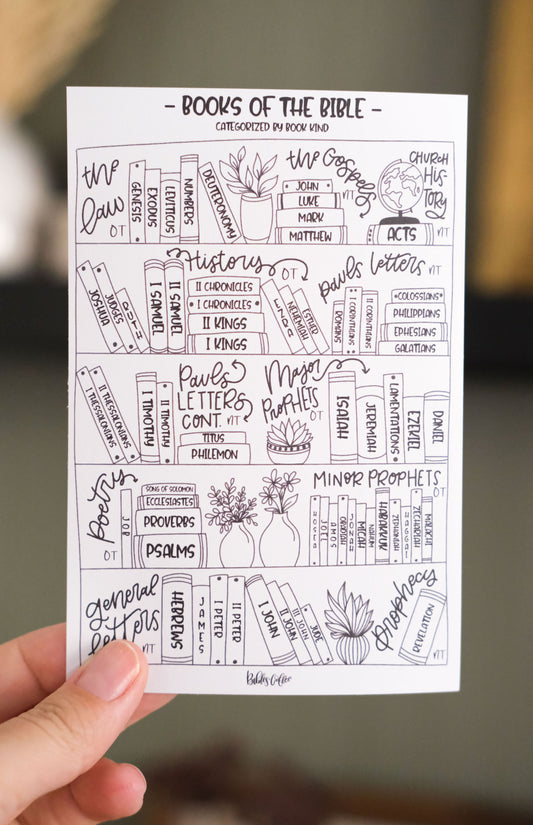 - BOOKS OF THE BIBLE -
CATEGORIZED BY BOOK KIND
the Law
OT
GENESIS
EXODUS
LEVITICUS
NUMBERS
DEUTERONOMY
the Gospels
NT
JOHN
LUKE
MARK
MATTHEW
CHURCH
HIS-
TORY
NT
ACTS
History
OT
JOSHUA
JUDGES
RUTH
I SAMUEL
II SAMUEL
II CHRONICLES
I CHRONICLES
II KINGS
I KINGS
EZRA
NEHEMIAH
ESTHER
pauls letters
NT
ROMANS
I CORINTHIANS
II CORINTHIANS
COLOSSIANS
PHILIPPIANS
EPHESIANS
GALATIANS
I THESSALONIANS
II THESSALONIANS
I TIMOTHY
II TIMOTHY
Pauls
LETTERS
CONT.
NT
TITUS
PHILEMON
Major
PROPHETS
OT
ISAIAH
JEREMIAH
LAMENTATIONS
EZEKIEL
DANIEL
poetry
OT
JOB
SONG OF SOLOMON
ECCLESIASTES
PROVERBS
PSALMS
MINOR PROPHETS
OT
HOSEA
JOEL
AMOS
OBADIAH
JONAH
MICAH
NAHUM
HABAKKUK
ZEPHANIAH
HAGGAI
ZECHARIAH
MALACHI
general
letters
NT
HEBREWS
JAMES
I PETER
II PETER
I JOHN
II JOHN
III JOHN
JUDE
prophecy
NT
REVELATION